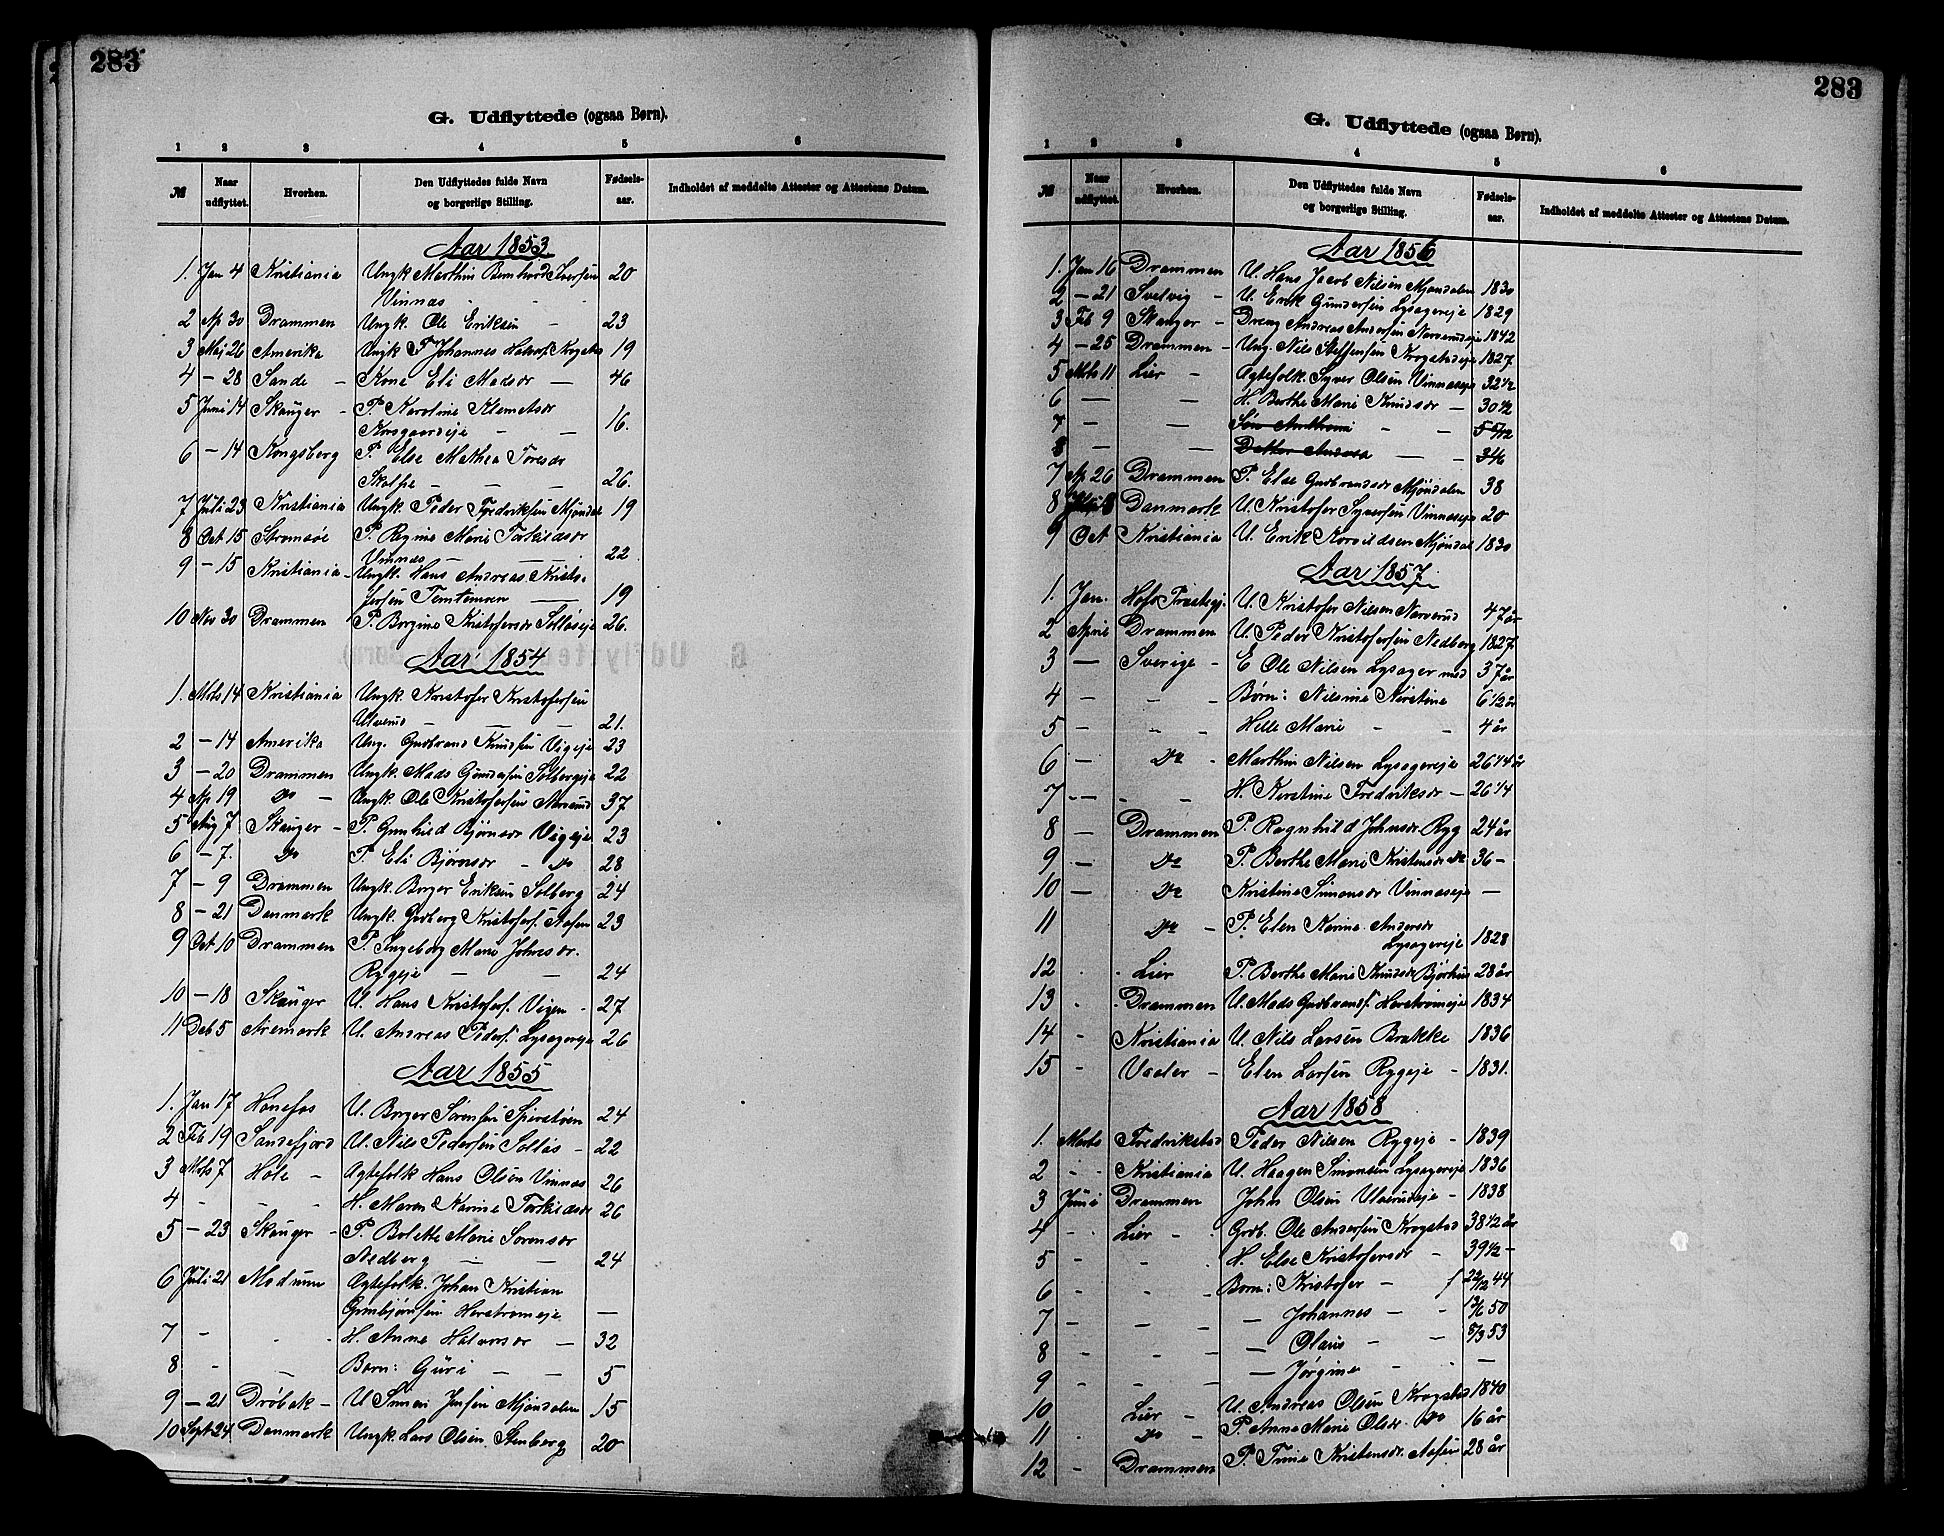 283
G. Udflyttede (ogsaa Børn).
1 2 3 4 5 6
№ Naar udflyttet. Hvorhen. Den Udflyttedes fulde Navn og borgerlige Stilling. Fødsels-aar. Indholdet af meddelte Attester og Attestens Datum.
Aar 1853
1. Jan 4 Kristiania Ungk Marthin Bernhard Iversen 20
Vinnas - - -
2 Ap 30 Drammen Ungk. Ole Eriksen - 23
3 Maj 26 Amerika Ungk Johannes Halvors. Krogstad 19
4 - 28 Sande - Kone Eli Madsdr - 46
5 Juni 14 Skauger - P. Karoline Klemetsdr
Korsgaardeje - - 16.
6 - 14 Kongsberg P. Else Mathea Toresdr
Skalpe - - - 26.
7 Juli 23 Kristiania Ungk Peder Fredriksen Mjøndal 19
8 Oct 15 Strømsøe P. Regine Marie Torkildsdr
Vinnæs - - - 22
9 - 15 Kristiania - Ungk. Hans Andreas Kristo-
fersen Temtemoen - 19
10 Nov 30 Drammen P. Børgine Kristofersdr Solbøseje 26.
Aar 1854
1. Mrts 14 Kristiania Ungk Kristofer Kristofersen
Ulverud - - - 21.
2 - 14 Amerika Ung. Gudbrand Knudsen Vigeje 23
3 - 20 Drammen Ungk. Mads Gundersen Solbergeje 22
4 Ap 19 Do - Ungk. Ole Kristofersen 37
5 Aug 7 Skauger - P. Gunhild Bjørnsdr Vigeje 23
6 - 7. Do P. Eli Bjørnsdr - Do 28
7 - 9 Drammen Ungk. Borger Eriksen Solberg 24
8 - 21 Danmark Ungk. Gudberg Kristofers. Aasen 23
9 Oct 10 Drammen P. Ingeborg Marie Johnsdr.
Rygeje - - 24
10 - 18 Skauger U. Hans Kristofers. Vigen - 27
11 Deb 5 Aremark U. Andreas Peders. Lysagereje 26
Aar 1855
1. Jan 17 Hønefos U. Borger Sørensen Spirstøen 24
2 Feb 19 Sandefjord U. Nils Pedersen Solløs - 22
3 Mrts 7 Hole - Ægtefolk Hans Olsen Vinnæs 26
4 - - - H. Maren Karine Torkildsdr 26
5 - 23 Skauger - P. Bolette Marie Sorensdr
Nedberg - - 24
6 Juli 21 Modum Ægtefolk. Johan Kristian
Gunbjørnsen Horstromeje -
7 - - - H. Anne Halvorsdr - 32
8 - - Børn: Guri - - 5
9 - 21 Drøbak - U Simen Jensen Mjøndalen 15
10 Sept 24 Danmark Ungk. Lars Olsen Stenberg 20
283
G. Udflyttede (ogsaa Børn).
1 2 3 4 5 6
№ Naar udflyttet. Hvorhen. Den Udflyttedes fulde Navn og borgerlige Stilling. Fødsels-aar. Indholdet af meddelte Attester og Attestens Datum.
Aar 1856
1. Jan 16 Drammen U. Hans Jacob Nilsen Mjøndalen 1830
2 - 21 Svelvig - U. Erik Gundersen Lysagereje 1829
3 Feb 9 Skauger - Dreng Andreas Andersen Narverudeje 1842
4 - 25 Drammen - Ung. Nils Steffensen Krogstadeje 1827.
5 Mrts 11 Lier - Ægtefolk. Syver Olsen Vinnæseje 32 1/2
6 - - H. Berthe Marie Knudsdr - 30 1/2
7 - - Søn Anthoni - - 5 5/12
8 - - Datter Andrea - - 3/6
7 Ap 26 Drammen P. Else Gudbrandsdr Mjøndalen 38
8 Danmark U. Kristofer Syversen Vinnæseje 20
9 Oct Kristiania U. Erik Korsildsen Mjøndal 1830
Aar 1857
1. Jan. Hofs Prestegj. U. Kristofer Nilsen Narverud 47 år
2 April Drammen U. Peder Kristofersen Nedberg 1827.
3 - Sverige - E Ole Nilsen Lysager med 37 år
4 - - - Børn: Nilsine Kirstine 6 1/2 år
5 - - - Helle Marie - - 4 år
6 - Do - Marthin Nilsen Lysagereje 26 1/4 år
7 - - - H. Kirstine Fredriksdr - 26 1/4
8 - Drammen P. Ragnhild Johnsdr. Ryg 24 år
9 - Do P. Berthe Marie Kristensdr Do 36 -
10 - Do Kristine Simonsdr Vinnæseje -
11 Do - P. Elen Karine Andersdr
Lysagereje 1828
12 - Lier P. Berthe Marie Knudsdr Bjørkne 28 år
13 - Drammen U. Mads Gudbrands. Horstromeje 1834
14 - Kristiania U. Nils Larsen Brakke 1836
15 - Vaaler - Elen Larsen Rygeje - 1831.
Aar 1858
1. Marts Fredrikstad Peder Nilsen Rygeje - 1839
2 - - Kristiania U. Haagen Simonsen Lysagereje 1836
3 Juni Drammen John Olsen Ulverudeje - 1838
4 - Lier - - Grdb. Ole Andersen Krogstad 38 1/2 år
5 - - - H. Else Kristofersdr - 39 1/2 -
6 - - - Børn: Kristofer - f 22/12 44
7 - - - - Johannes - - 13/6 50
8 - - - - Olaus - - 5/3 53
9 - - - - Jørgine - - -
10 - Lier - U. Andreas Olsen Krogstad 1840
11 - Do - P. Anna Marie Olsdr. Do 16 år
12 - Drammen P. Trine Kristensdr. Aasen 28 år